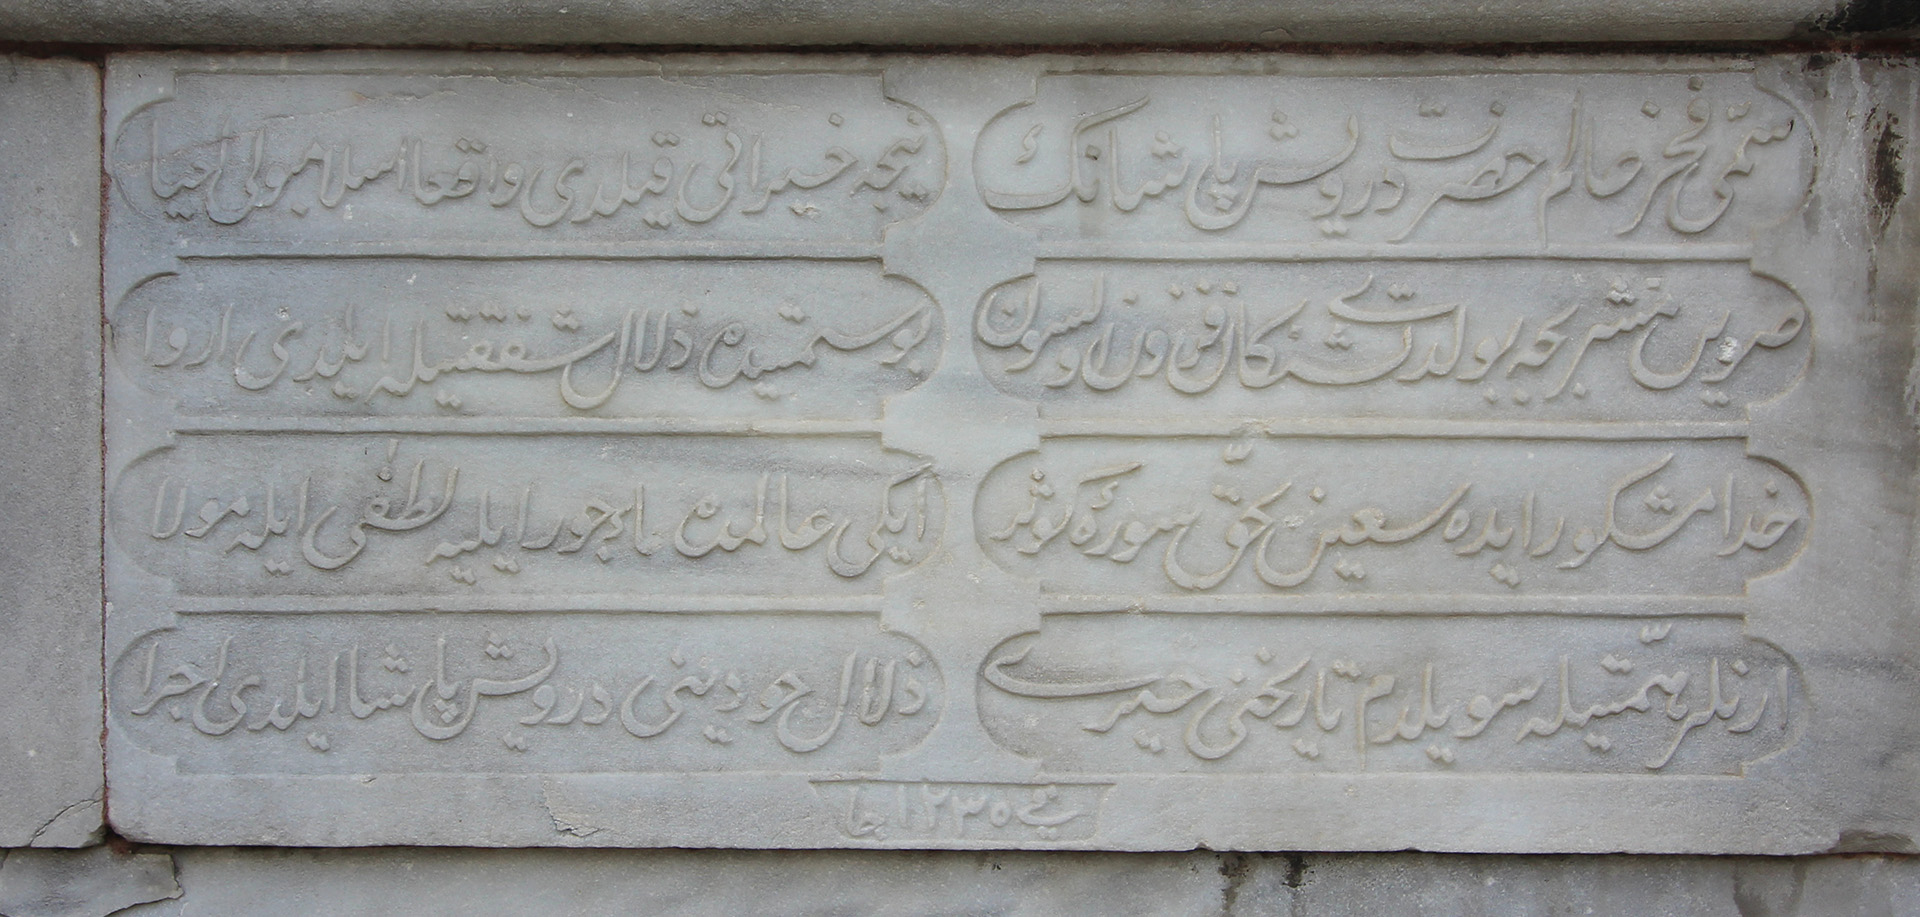 سمّی فخر عالم حضرت درویش پاشانك
نیجه خیراتی قیلدی واقعا اسلامبولی احیا
صویین مشربجه بولدی تشنکان افزون اولسون
بوسمتیده زلال شفقتیله ایلدی اروا
خدا مشکور ایده سعین بحقّ سورهٔ کوثر
ایکی عالمده مأجور ایلیه لطفی ایله مولا
ارنلر همّتیله سویلدم تاریخنی خیری
زلال جودینی درویش پاشا ایلدی اجرا
۱۲۳۵